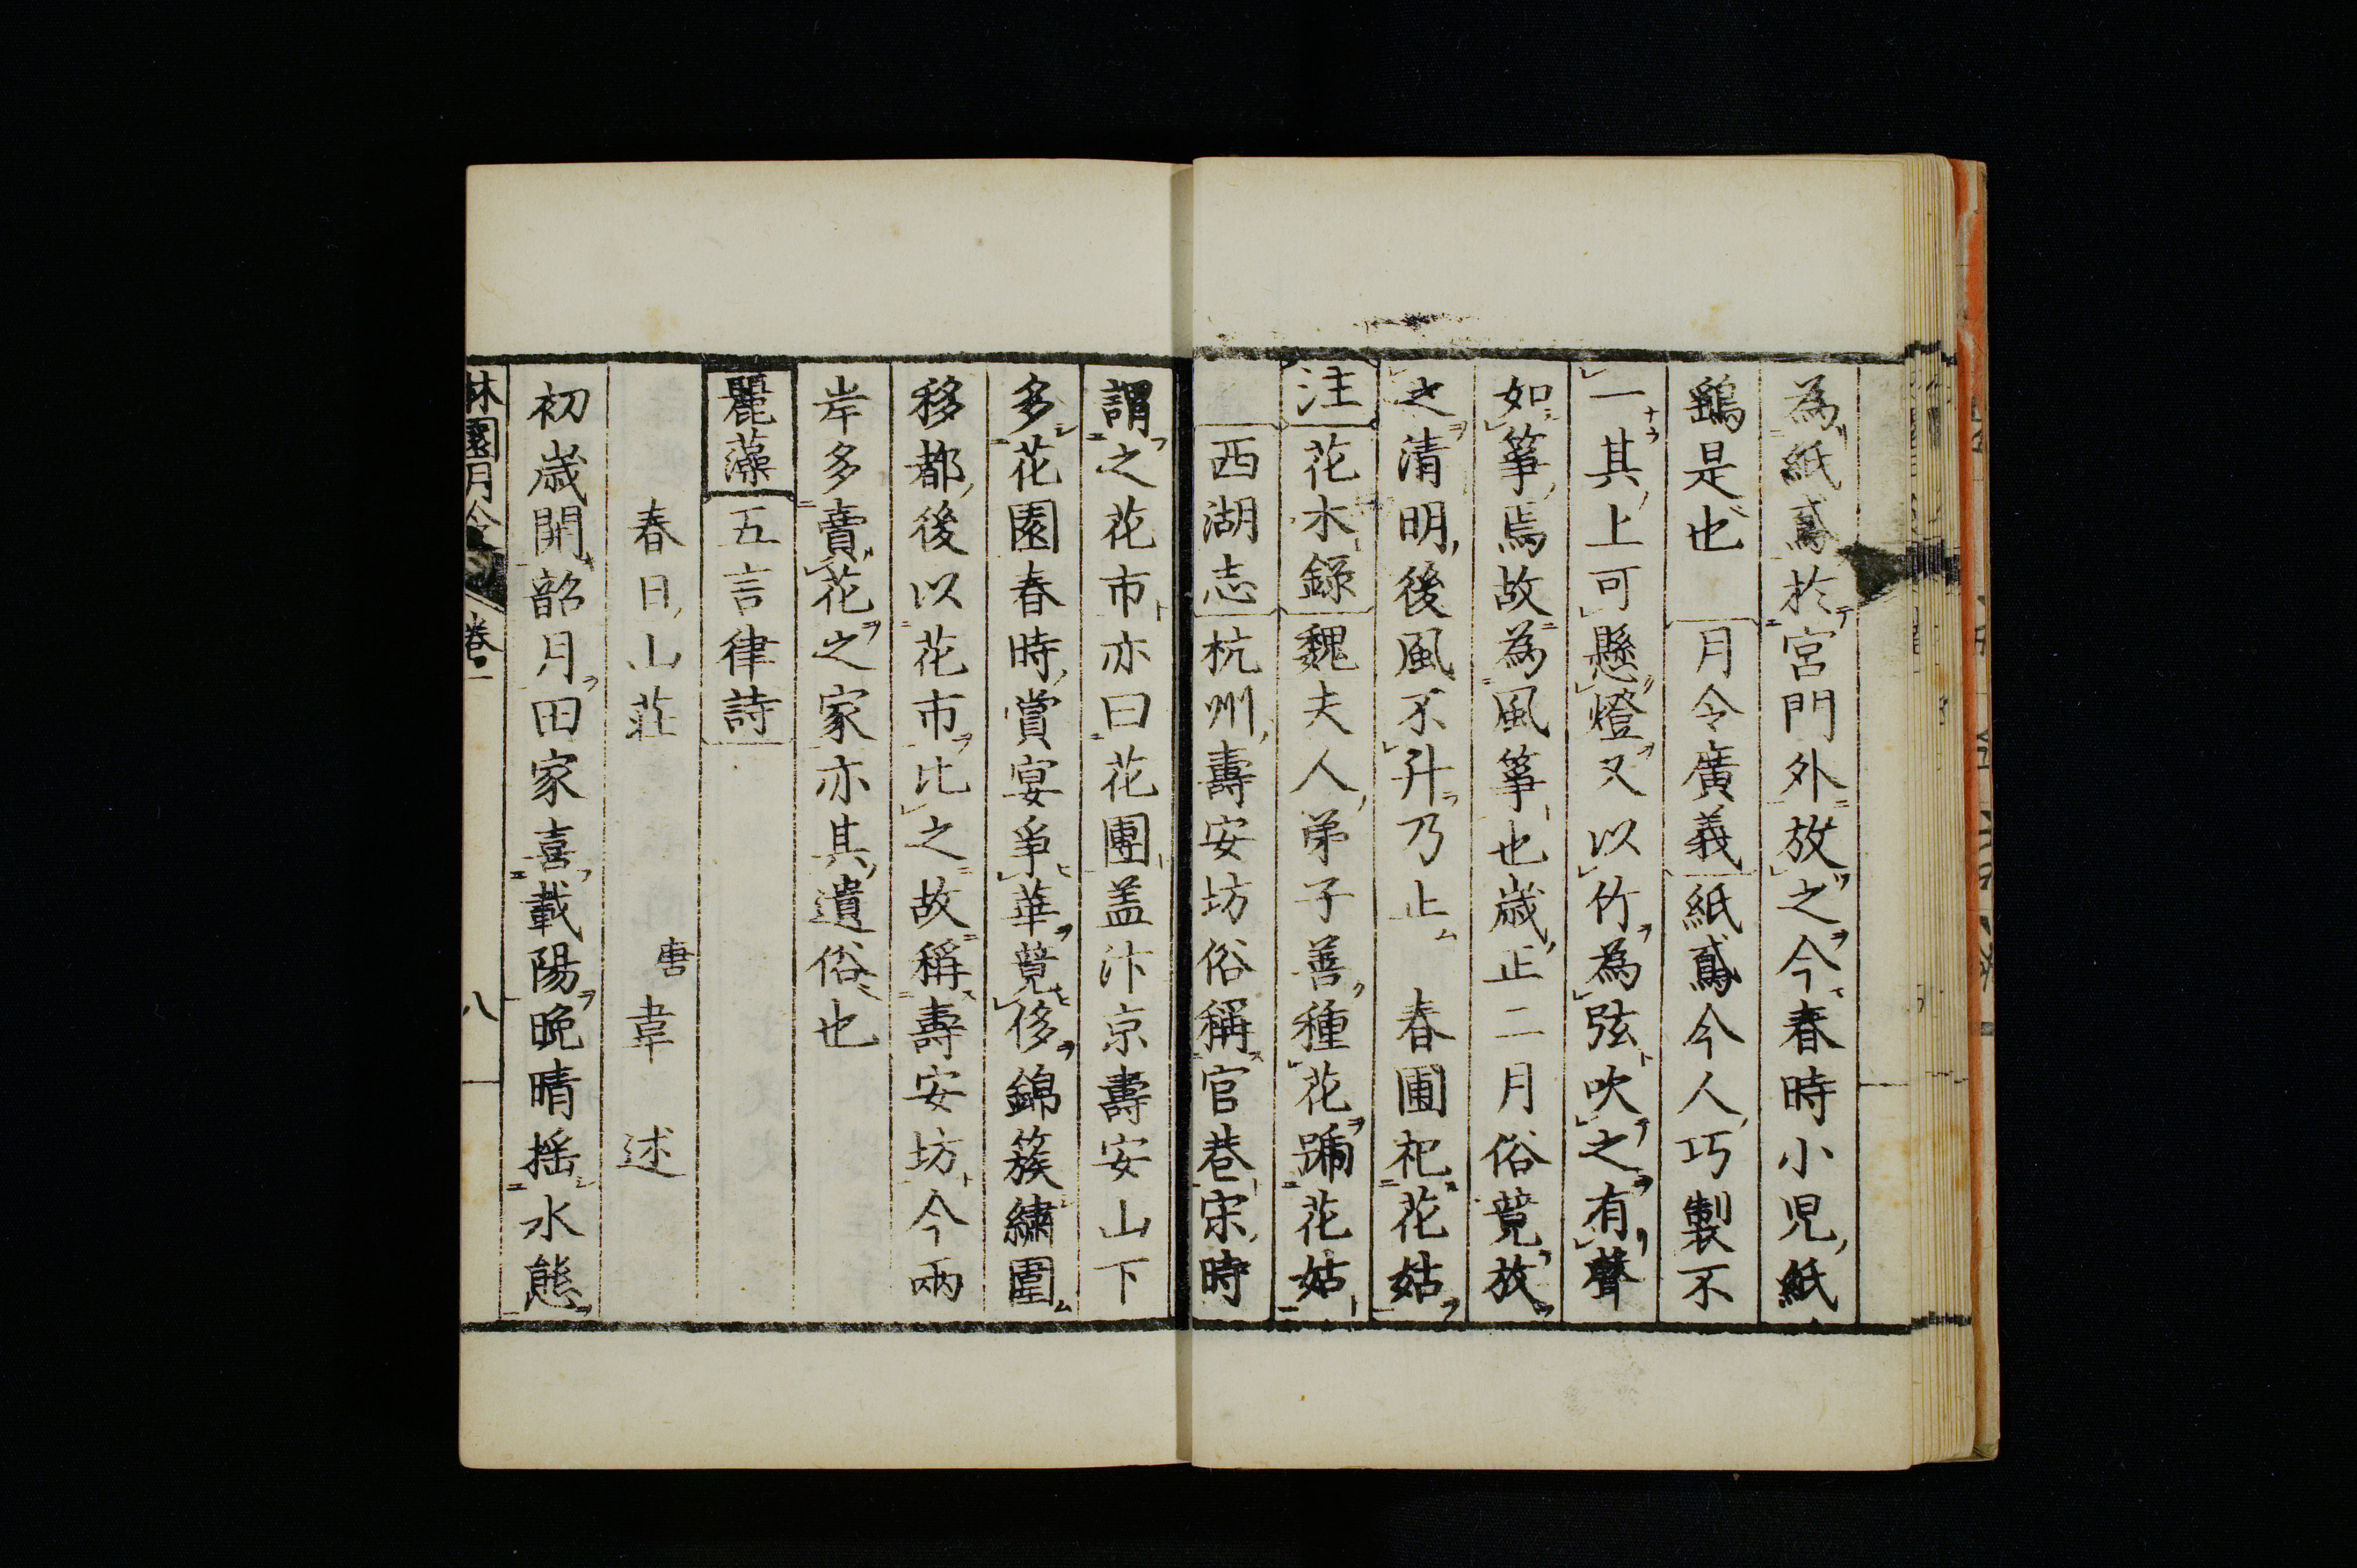 為紙鳶於宮門外放之今春時小児紙
鷂是也 月令廣義紙鳶今人巧製不
一其上可懸燈又以竹為弦吹之有聲
如箏焉故為風箏也歳正二月俗競放
之清明後風不升乃止 春圃祀花姑
注花木録魏夫人弟子善種花號花姑
西湖志杭州壽安坊俗稱官巷宋時
謂之花市亦曰花團盖汴京壽安山下
多花園春時賞宴爭華競侈錦簇繡圍
移都後以花市比之故稱壽安坊今兩
岸多賣花之家亦其遺俗也
麗藻五言律詩
春日山莊 唐 韋 述
初歳開韶月田家喜載陽晩晴揺水態
林園月令 卷一 八